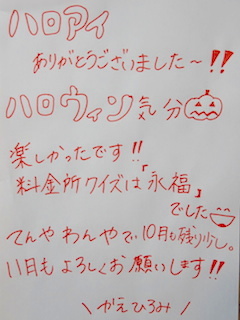 ハロアイ
ありがとうございました〜!!
ハロウィン気分
楽しかったです!!
料金所クイズは「永福」
でした
てんやわんやで、10月も残り少し。
11月もよろしくお願いします!!
\ かえひろみ /